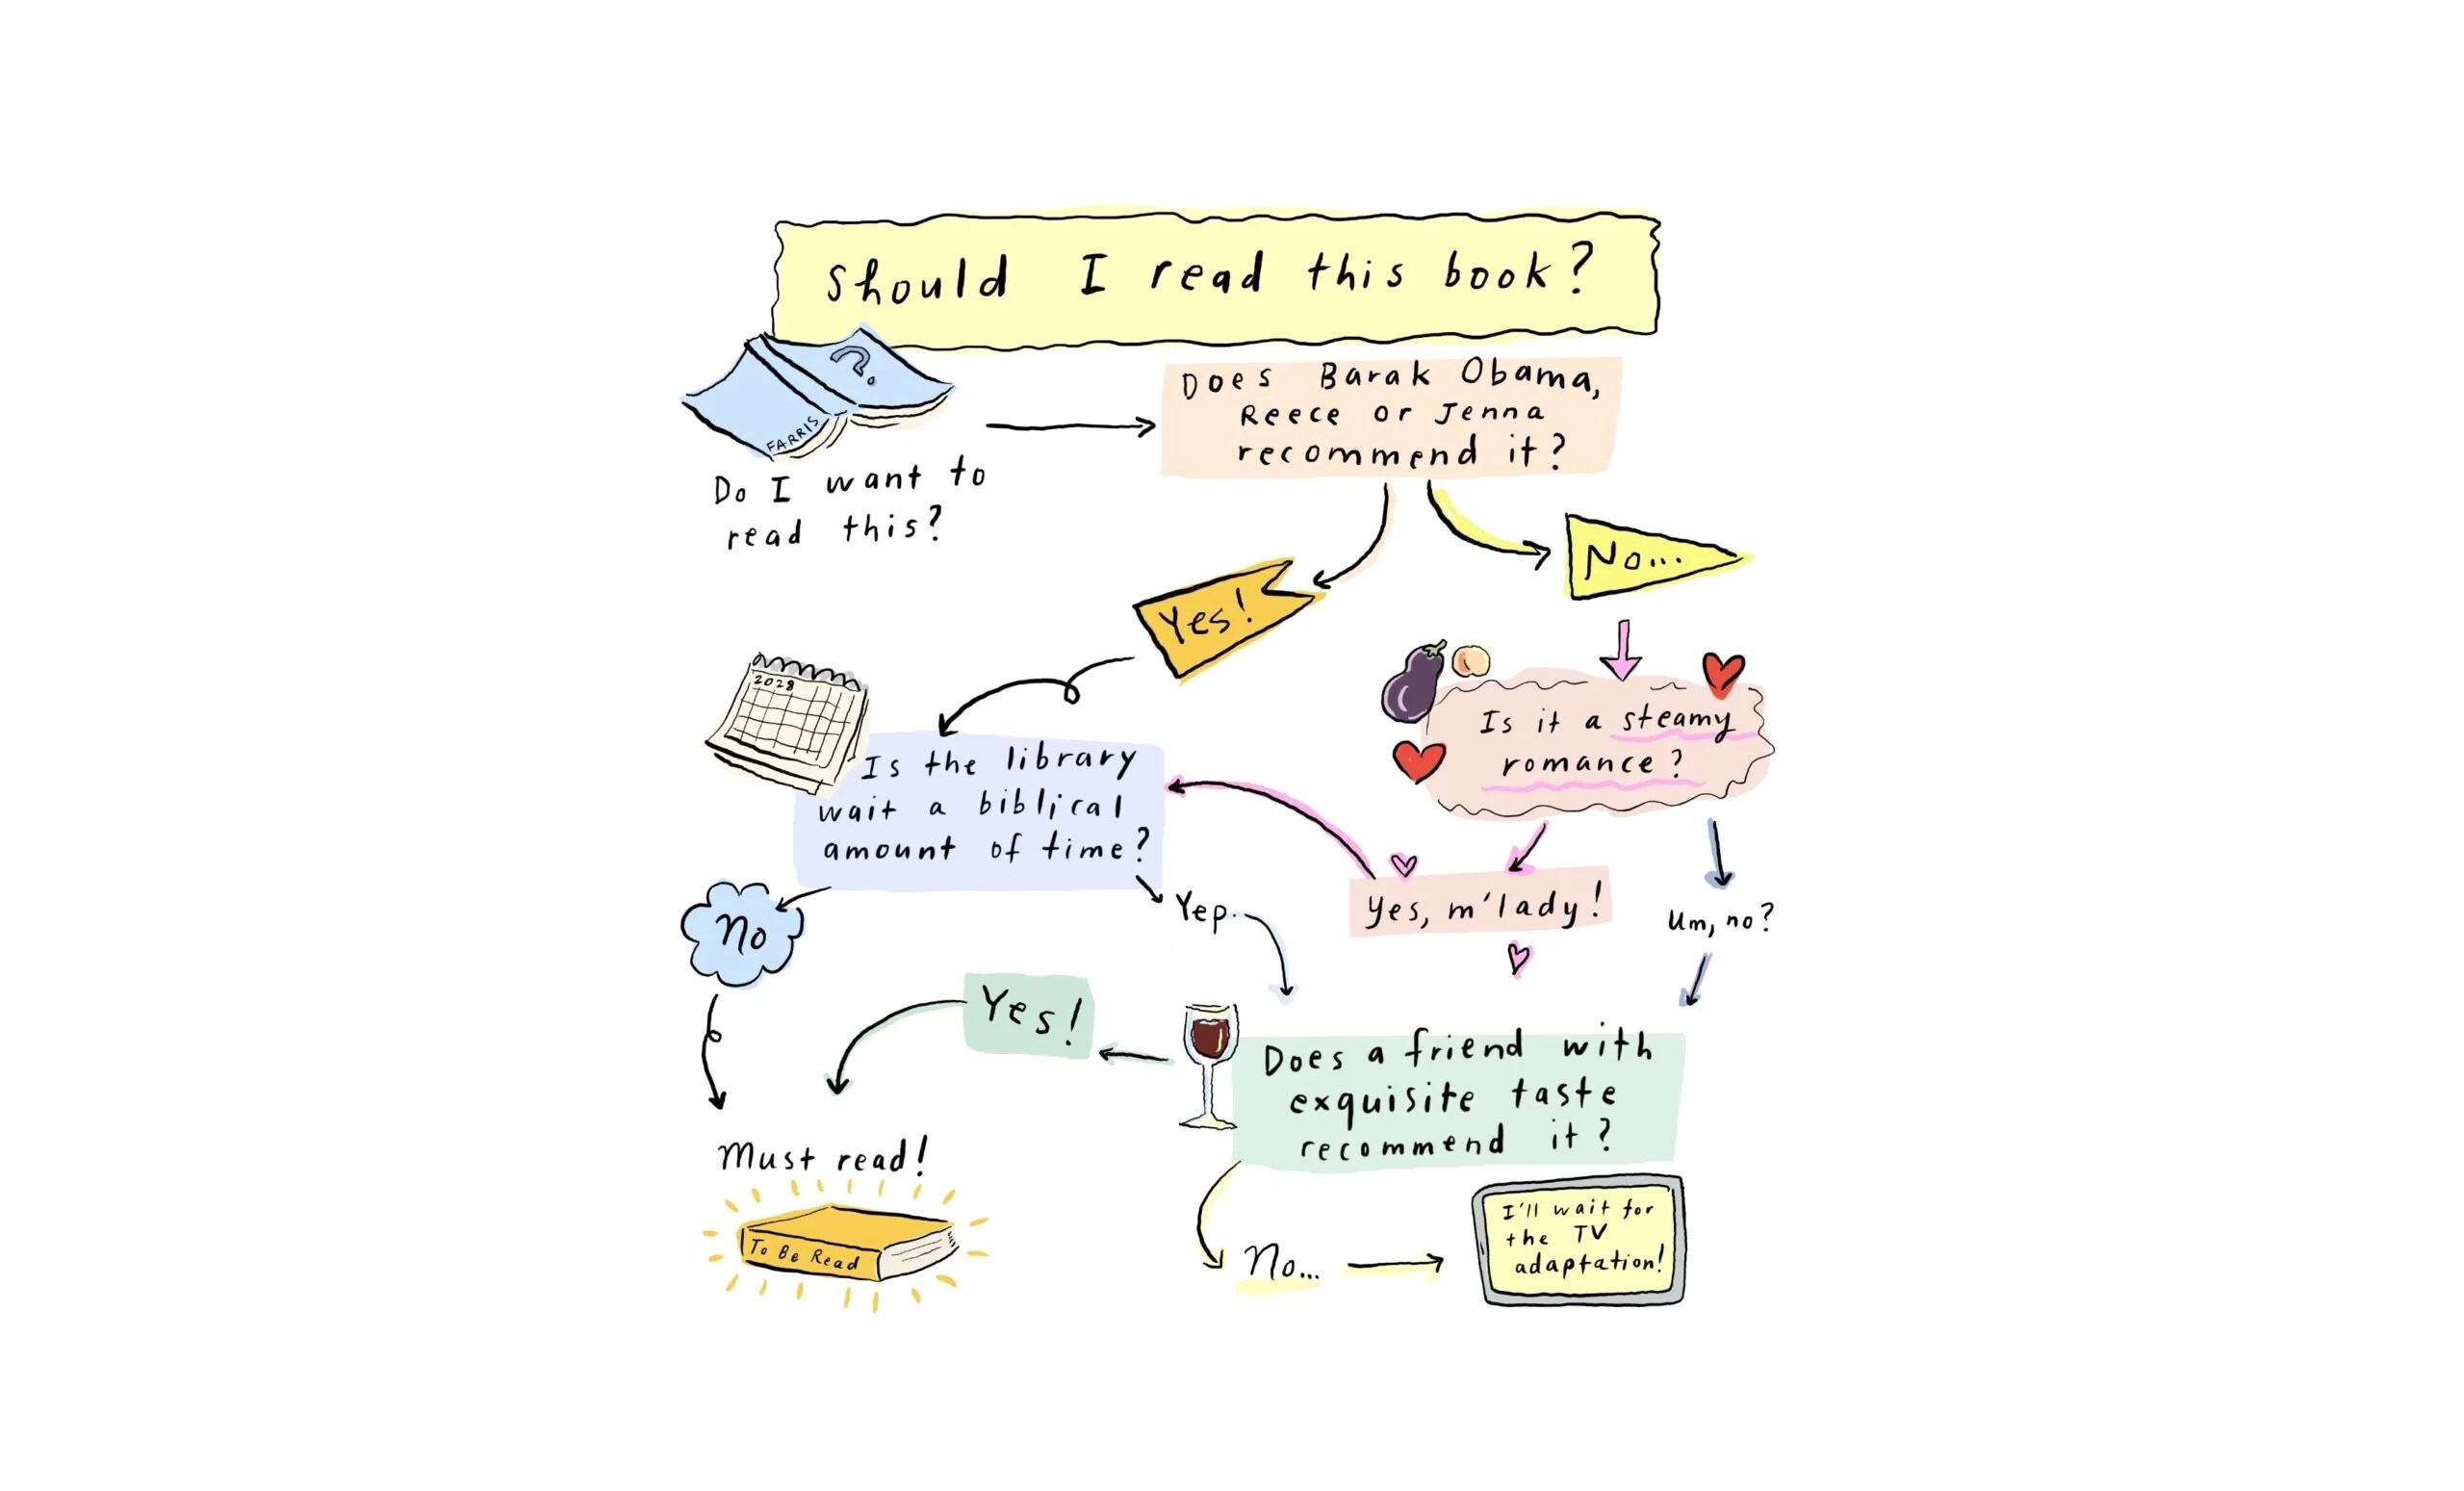 Should I read this book?
?
FARRIS
Do I want to
read this?
Does Barak Obama,
Reece or Jenna
recommend it?
Yes!
No...
2028
Is the library
wait a biblical
amount of time?
Is it a steamy
romance?
Yes, m'lady!
Um, no?
No
Yep.
Yes!
Does a friend with
exquisite taste
recommend it?
Must read!
To Be Read
No...
I'll wait for
the TV
adaptation!